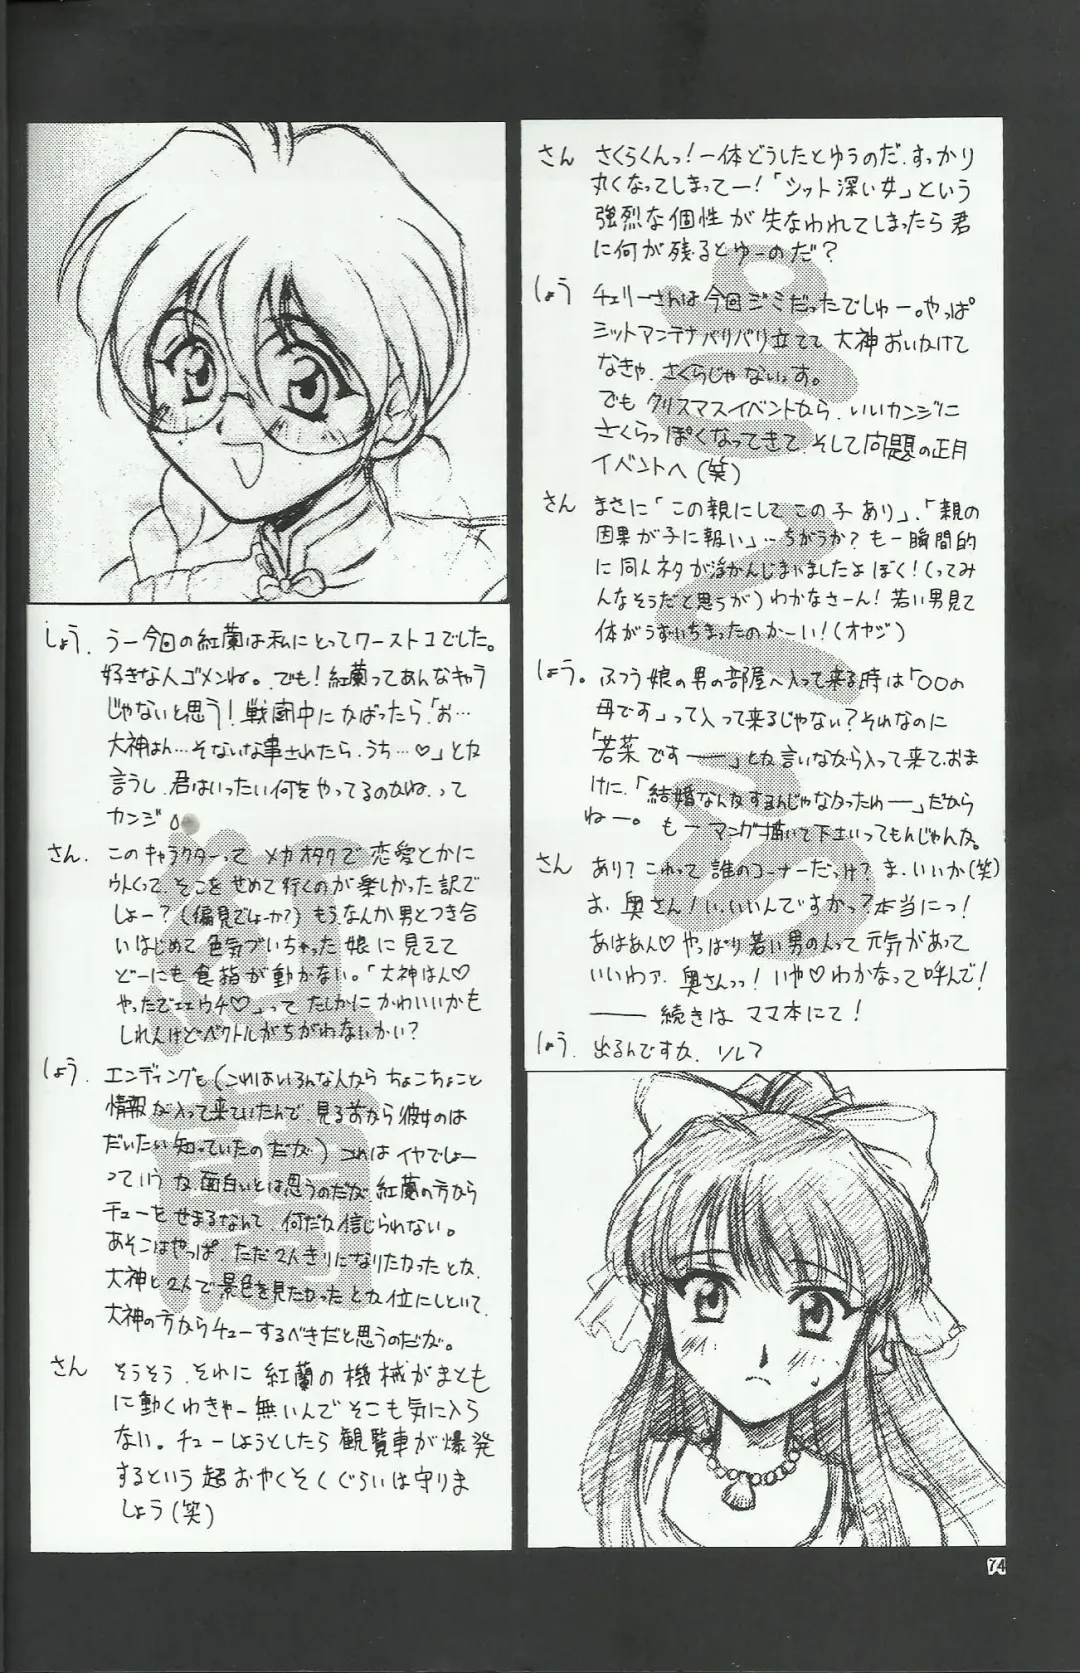 しょう. うー今回の紅蘭は私にとってワーストコでした。
好きな人ゴメンね。でも!紅蘭ってあんなキャラ
じゃないと思う!戦闘中にかばったら「お…
大神はん…そないな事されたら、うち…♡」とか
言うし、君はいったい何をやってるのかね、って
カンジ。
さん. このキャラクターって メカオタクで 恋愛とかに
ウトくって、そこをせめて行くのが楽しかった訳で
しょー?(偏見でしょーか?)もう、なんか男とつき合
いはじめて 色気づいちゃった 娘に見えて
どーにも食指が動かない。「大神はん♡
やったでエエ ウチ♡」って たしかにかわいいかも
しれんけど、ベクトルがちがわないかい?
しょう. エンディングも(これはいろんな人から ちょこちょこと
情報が入って来ていたんで、見る前から彼女のは
だいたい知っていたのだが)これはイヤでしょー
っていうか面白いとは思うのだが、紅蘭の方から
チューをせまるなんて、何だか信じられない。
あそこはやっぱ ただ2人きりになりたかったとか、
大神と2人で景色を見たかったとか位にしといて、
大神の方からチューするべきだと思うのだが。
さん そうそう、それに 紅蘭の機械がまとも
に動くわきゃー無いんで そこも気に入ら
ない。チューしようとしたら 観覧車が爆発
するという 超おやくそくぐらいは守りま
しょう(笑)
紅蘭
さん さくらくんっ!一体どうしたとゆうのだ、すっかり
丸くなってしまってー!「シット深い女」という
強烈な個性が失なわれてしまったら君
に何が残るとゆーのだ?
しょう チェリーさんは今回ジミだったでしゅー。やっぱ
ミットアンテナバリバリ立てて 大神おいかけて
なきゃ、さくらじゃないっす。
でも クリスマスイベントから、いいカンジに
さくらっぽくなってきて、そして問題の正月
イベントへ(笑)
さん まさに「この親にして この子 あり」、「親の
因果が子に報い」…ちがうか?もー瞬間的
に同人ネタが浮かんじまいましたよ ぼく!(ってみ
んなそうだと思うが)わかなさーん!若い男見て
体がうずいちまったのかーい!(オヤジ)
しょう。ふつう娘の男の部屋へ入って来る時は「○○の
母です」って入って来るじゃない?それなのに
「若菜ですーー」とか言いながら入って来て、おま
けに、「結婚なんかするんじゃなかったわー」だから
ねー。もーマンガ描いて下さいってもんじゃんか。
さん あり?これって 誰のコーナーだっけ?ま、いいか(笑)
お、奥さん!い、いいんですかっ?本当にっ!
あはあん♡ やっぱり若い男の人って 元気があって
いいわァ、奥さんっっ!いや♡わかなって呼んで!
―― 続きは ママ本にて!
しょう. 出るんですか、ソレ?
さくら
74